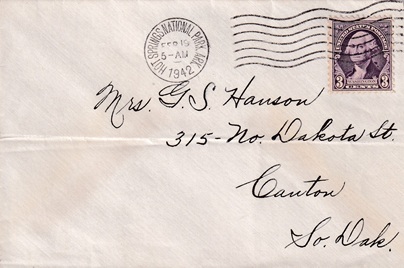 HOT SPRINGS NATIONAL PARK, ARK.
FEB 19
5-AM
1942
3 3
Mrs. G. S. Hanson
315-No. Dakota St.
Canton
So. Dak.